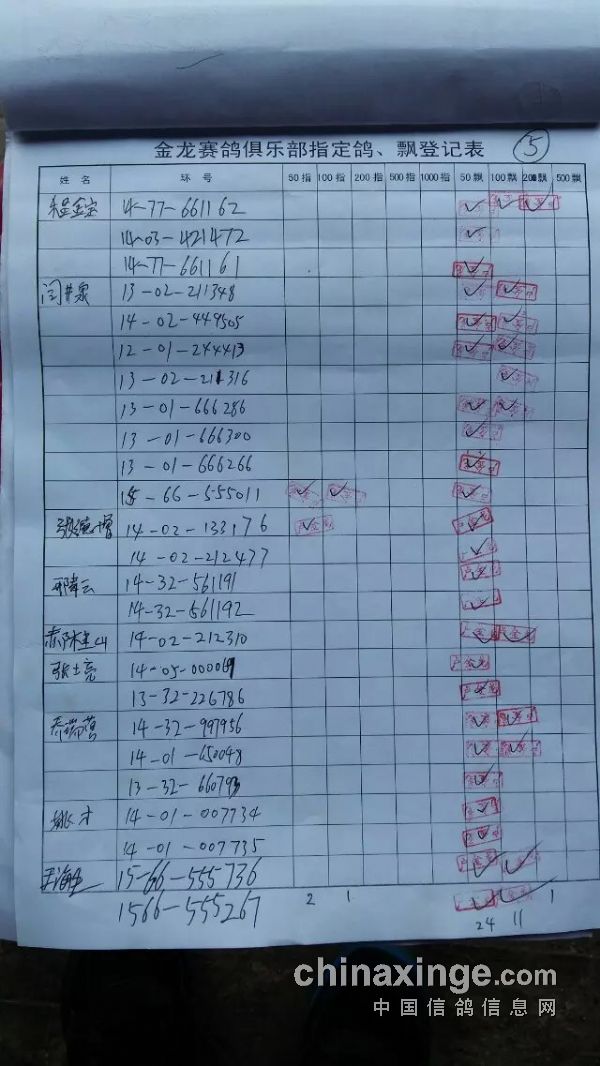 金龙赛鸽俱乐部指定鸽、飘登记表 ⑤
姓名 环号 50指 100指 200指 500指 1000指 50飘 100飘 200飘 500飘
程金宝 14-77-661162 ✓ ✓ ✓
14-03-421472 ✓
14-77-661161 ✓
闫井泉 13-02-211348 ✓ ✓
14-02-449505 ✓ ✓
12-01-244413 ✓ ✓
13-02-211316 ✓
13-01-666286 ✓ ✓
13-01-666300 ✓
13-01-666266 ✓
15-66-555011 ✓ ✓ ✓
14-02-133176 ✓ ✓
14-02-212477 ✓
14-32-561191 ✓
14-32-561192 ✓
14-02-212310 ✓ ✓
张士亮 14-05-0000
13-32-226786 ✓
14-32-997956 ✓ ✓
14-01-650048 ✓ ✓
13-32-660793 ✓
姚才 14-01-007734 ✓
14-01-007735 ✓
15-66-555736 ✓ ✓
1566-555267 ✓ ✓
2 1 24 11 1
chinaxinge.com
中国信鸽信息网